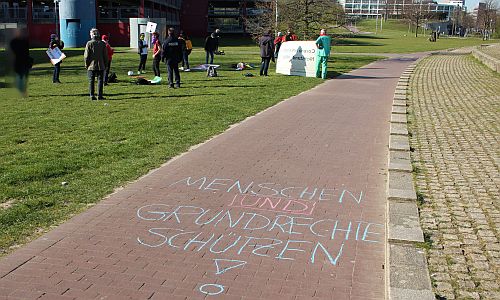 MENSCHEN
UND
GRUNDRECHTE
SCHÜTZEN
!